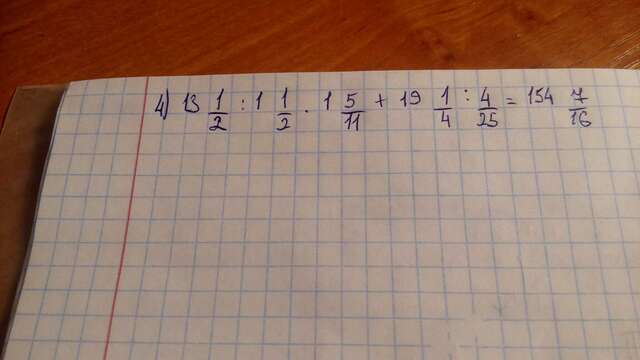 4) 13 1/2 : 1 1/2 . 1 5/11 + 19 1/4 : 4/25 = 154 7/16